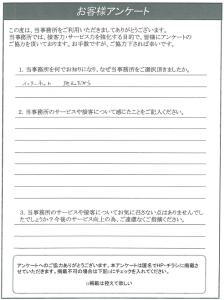 お客様アンケート
この度は、当事務所をご利用いただきましてありがとうございます。
当事務所では、接客力・サービス力を強化する目的で、皆様にアンケートの
ご協力を頂いております。お手数ですが、ご協力下されば幸いです。
1. 当事務所を何でお知りになり、なぜ当事務所をご選択頂きましたか。
インターネット 近えだから
2. 当事務所のサービスや接客について感じたことをご記入ください。
3. 当事務所のサービスや接客についてお気に召さない点はありませんでし
たでしょうか?今後のサービス向上の為、ご遠慮なくご指摘ください。
アンケートへのご協力ありがとうございます。本アンケートは匿名でHP・チラシに掲載さ
せていただきます。掲載不可の場合は下記□にチェックを入れてください。
□掲載は控えて欲しい